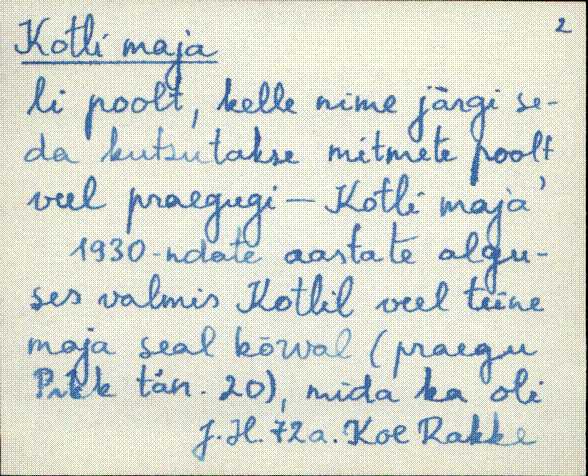 2
Kotli maja
li poolt, kelle nime järgi se-
da kutsutakse mitmete poolt
veel praegugi — Kotli maja'
1930-ndate aastate algu-
ses valmis Kotlil veel teine
maja seal kõrval (praegu
Pikk tän. 20), mida ka oli
J. H. 72 a. Koe Rakke